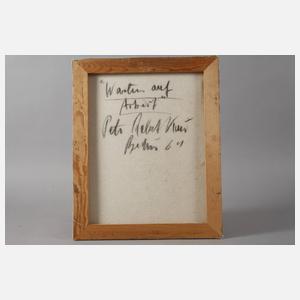 "Warten auf
Arbeit"
Peter Robert Keil
Berlin 61